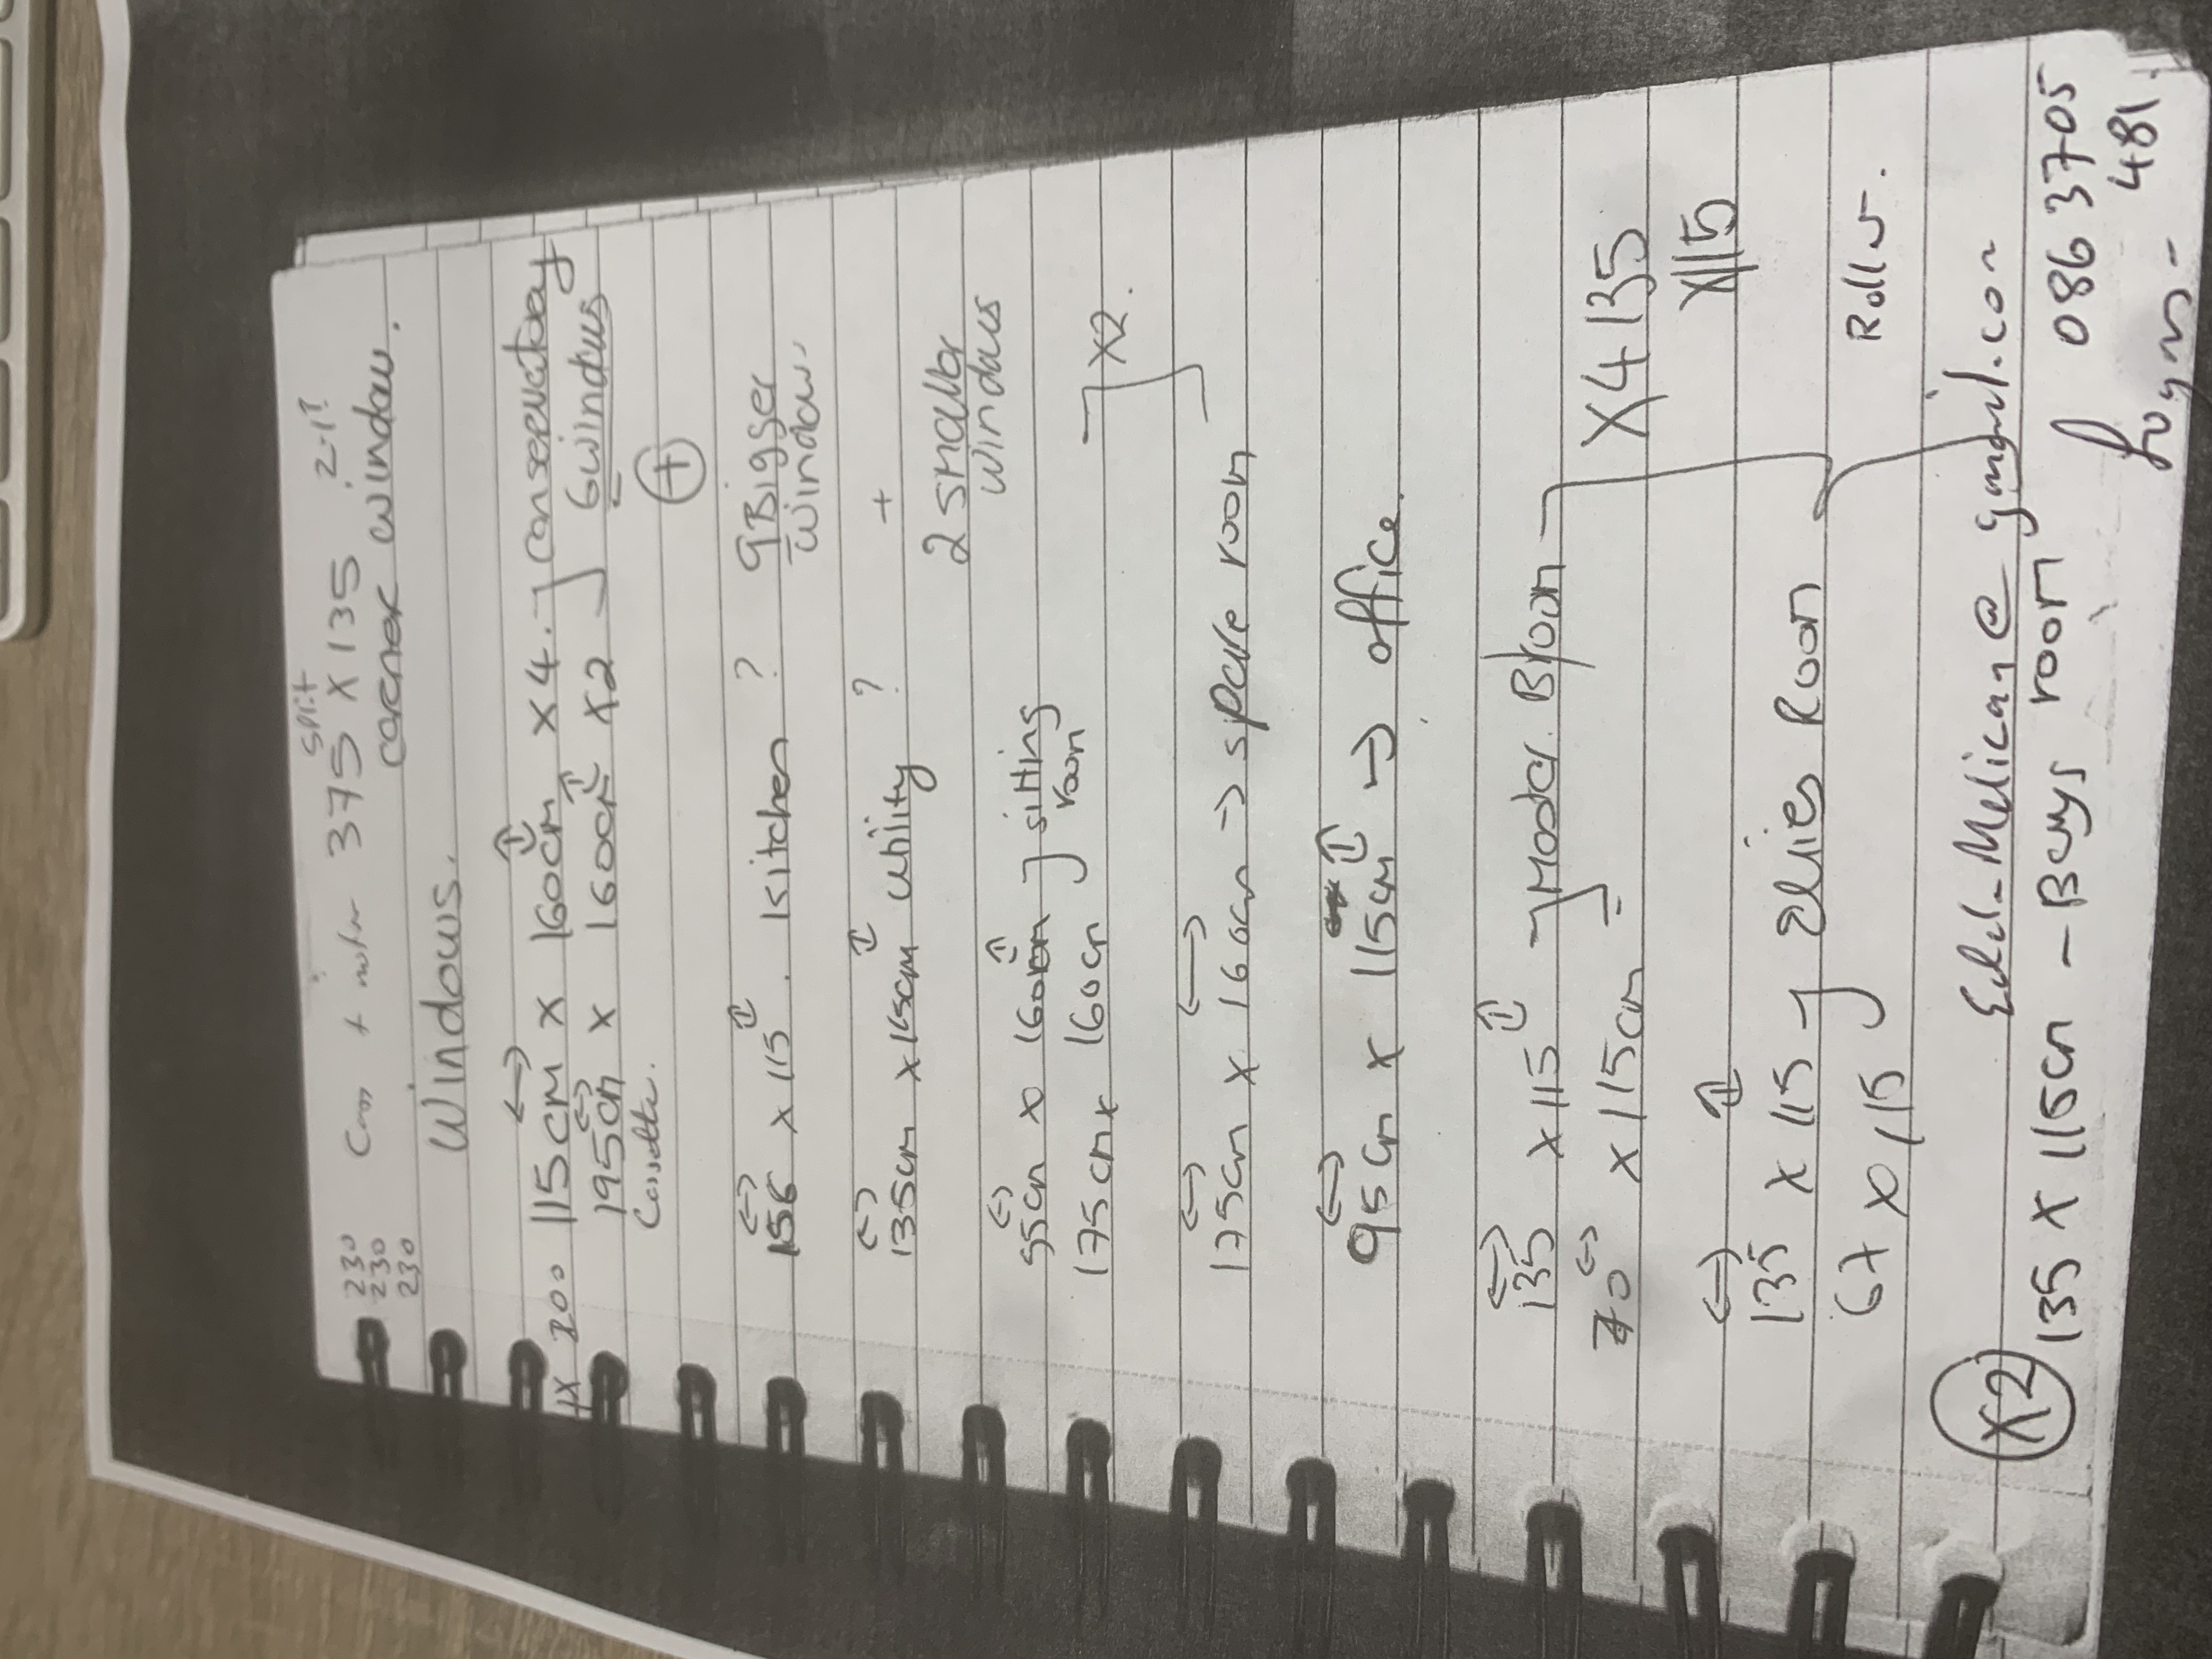 230 split 2-1?
230 + 375 x 135
230 corner window.
Windows.
115cm x 160cm x 4. conservatory
4x 200
195cm x 160cm x2 6 windows
Cassette.
+
156 x 115. Kitchen ? 9 Bigger
windows
135cm x 115cm utility ? +
2 smaller
windows
95cm x 160cm sitting
175cm x 160cm room
x2.
175cm x 160cm → spare room
95cm x 115cm → office.
135 x 115 Master B/room
70 x 115cm
X4 135
X 115
135 x 115 Ellies Room
67 x 115
Roller.
Edel-Melican@gmail.com
x2 135 x 115cm - Boys room
086 3705
481.